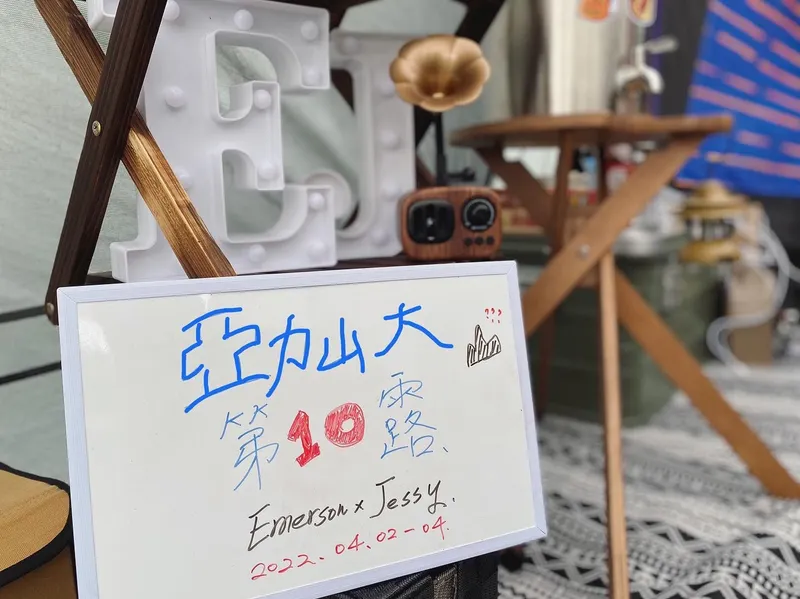 EJ
亞力山大
???
第10露.
Emerson x Jessy.
2022.04.02-04.